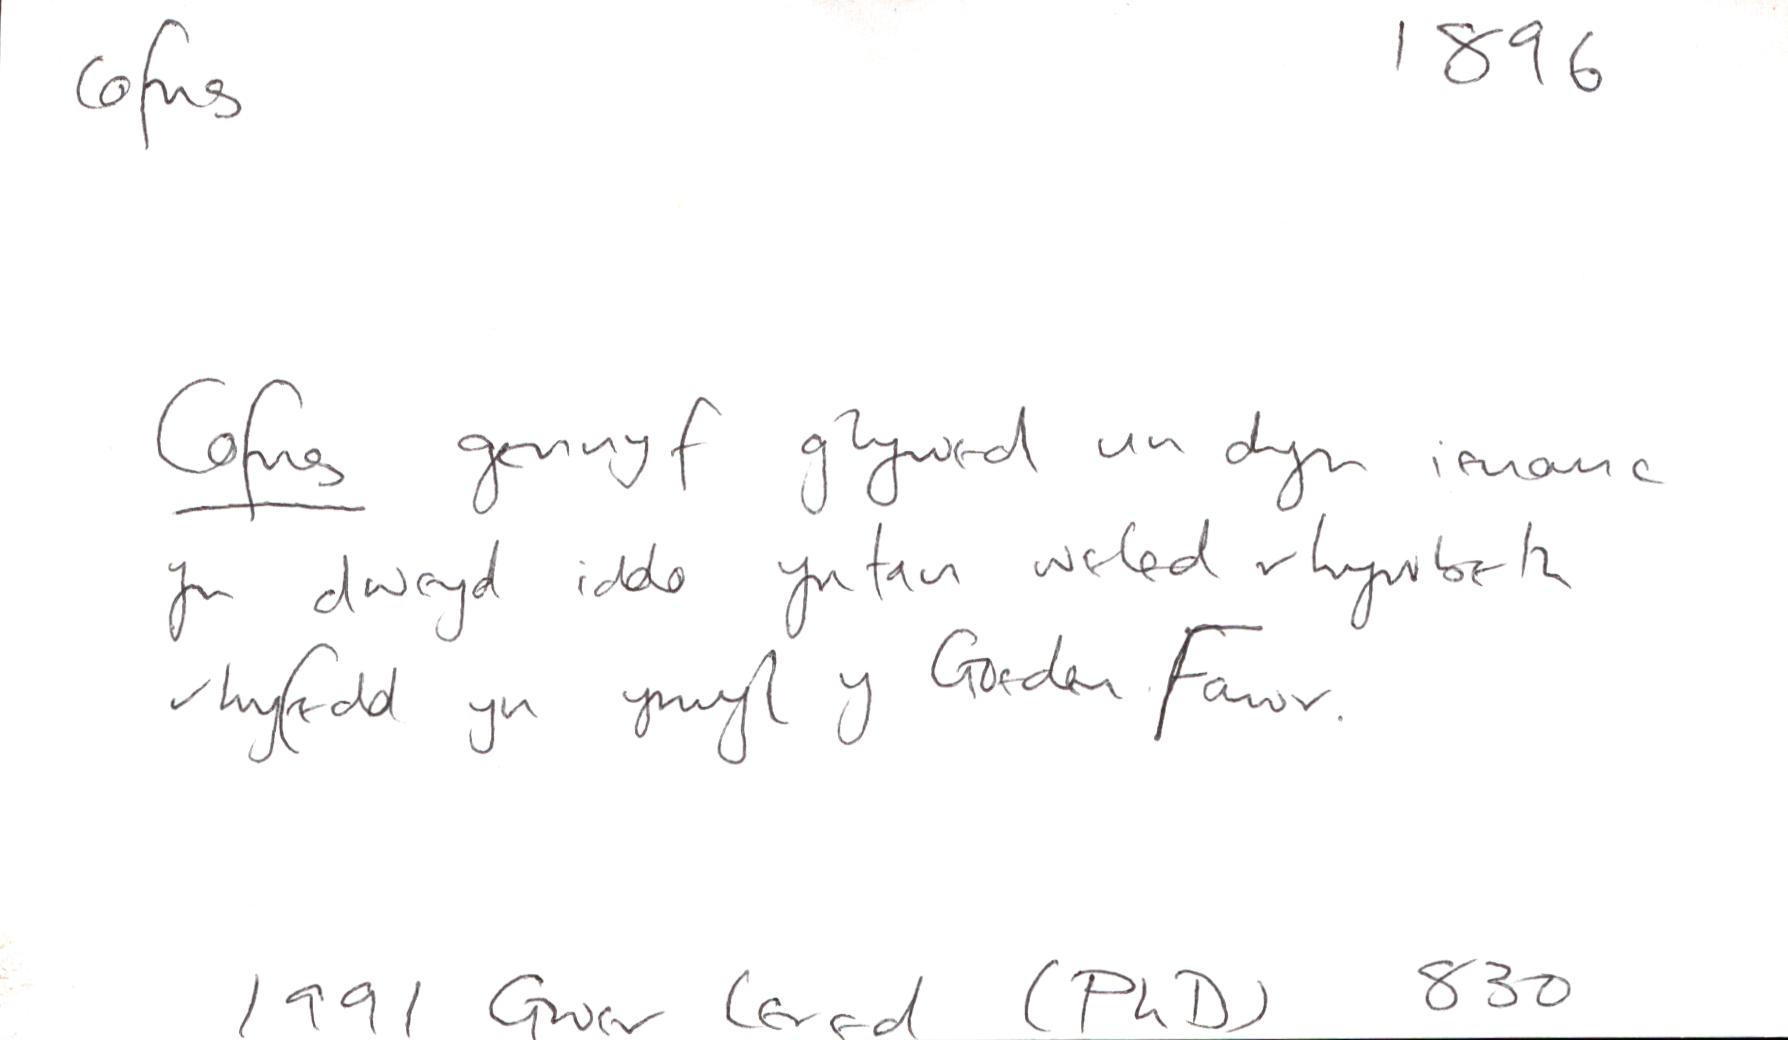 cofus 1896
Cofus gennyf glywed un dyn ieuanc
yn dweyd iddo yntau weled rhywbeth
rhyfedd yn ymyl y Goeden Fawr.
1991 Gwer Cered (PhD) 830